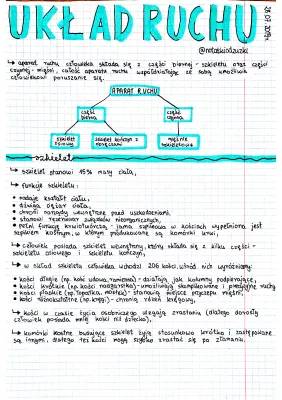 UKŁAD RUCHU
28.07.2019r.
@notatkiodzuzki
↳ aparat ruchu człowieka składa się z części biernej - szkieletu oraz części
czynnej - mięśni, całość aparatu ruchu współdziałając ze sobą umożliwia
człowiekowi poruszanie się.
APARAT RUCHU
część bierna
część czynna
szkielet osiowy
szkielet kończyn z obręczami
mięśnie szkieletowe
szkielet
↳ szkielet stanowi 15% masy ciała,
↳ funkcje szkieletu:
• nadaje kształt ciału,
• dźwiga ciężar ciała,
• chroni narządy wewnętrzne przed uszkodzeniami,
• stanowi rezerwuar związków nieorganicznych,
• pełni funkcję krwiotwórczą - jama szpikowa w kościach wypełniona jest
szpikiem kostnym, w którym produkowane są komórki krwi,
↳ człowiek posiada szkielet wewnętrzny, który składa się z kilku części -
szkieletu osiowego i szkieletu kończyn,
↳ w skład szkieletu człowieka wchodzi 206 kości, wśród nich wyróżniamy:
• kości długie (np. kość udowa, ramienna) - działają jak kolumny podpierające,
• kości krótkie (np. kości nadgarstka) - umożliwiają skomplikowane i precyzyjne ruchy
• kości płaskie (np. łopatka, mostek) - stanowią miejsce przyczepu mięśni,
• kości różnokształtne (np. kręgi) - chronią rdzeń kręgowy,
↳ kości w czasie życia osobniczego ulegają zrastaniu (dlatego dorosły
człowiek posiada mniej kości niż dziecko),
↳ komórki kostne budujące szkielet żyją stosunkowo krótko i zastępowane
są innymi, dlatego też kości mogą szybko zrastać się po złamaniu.